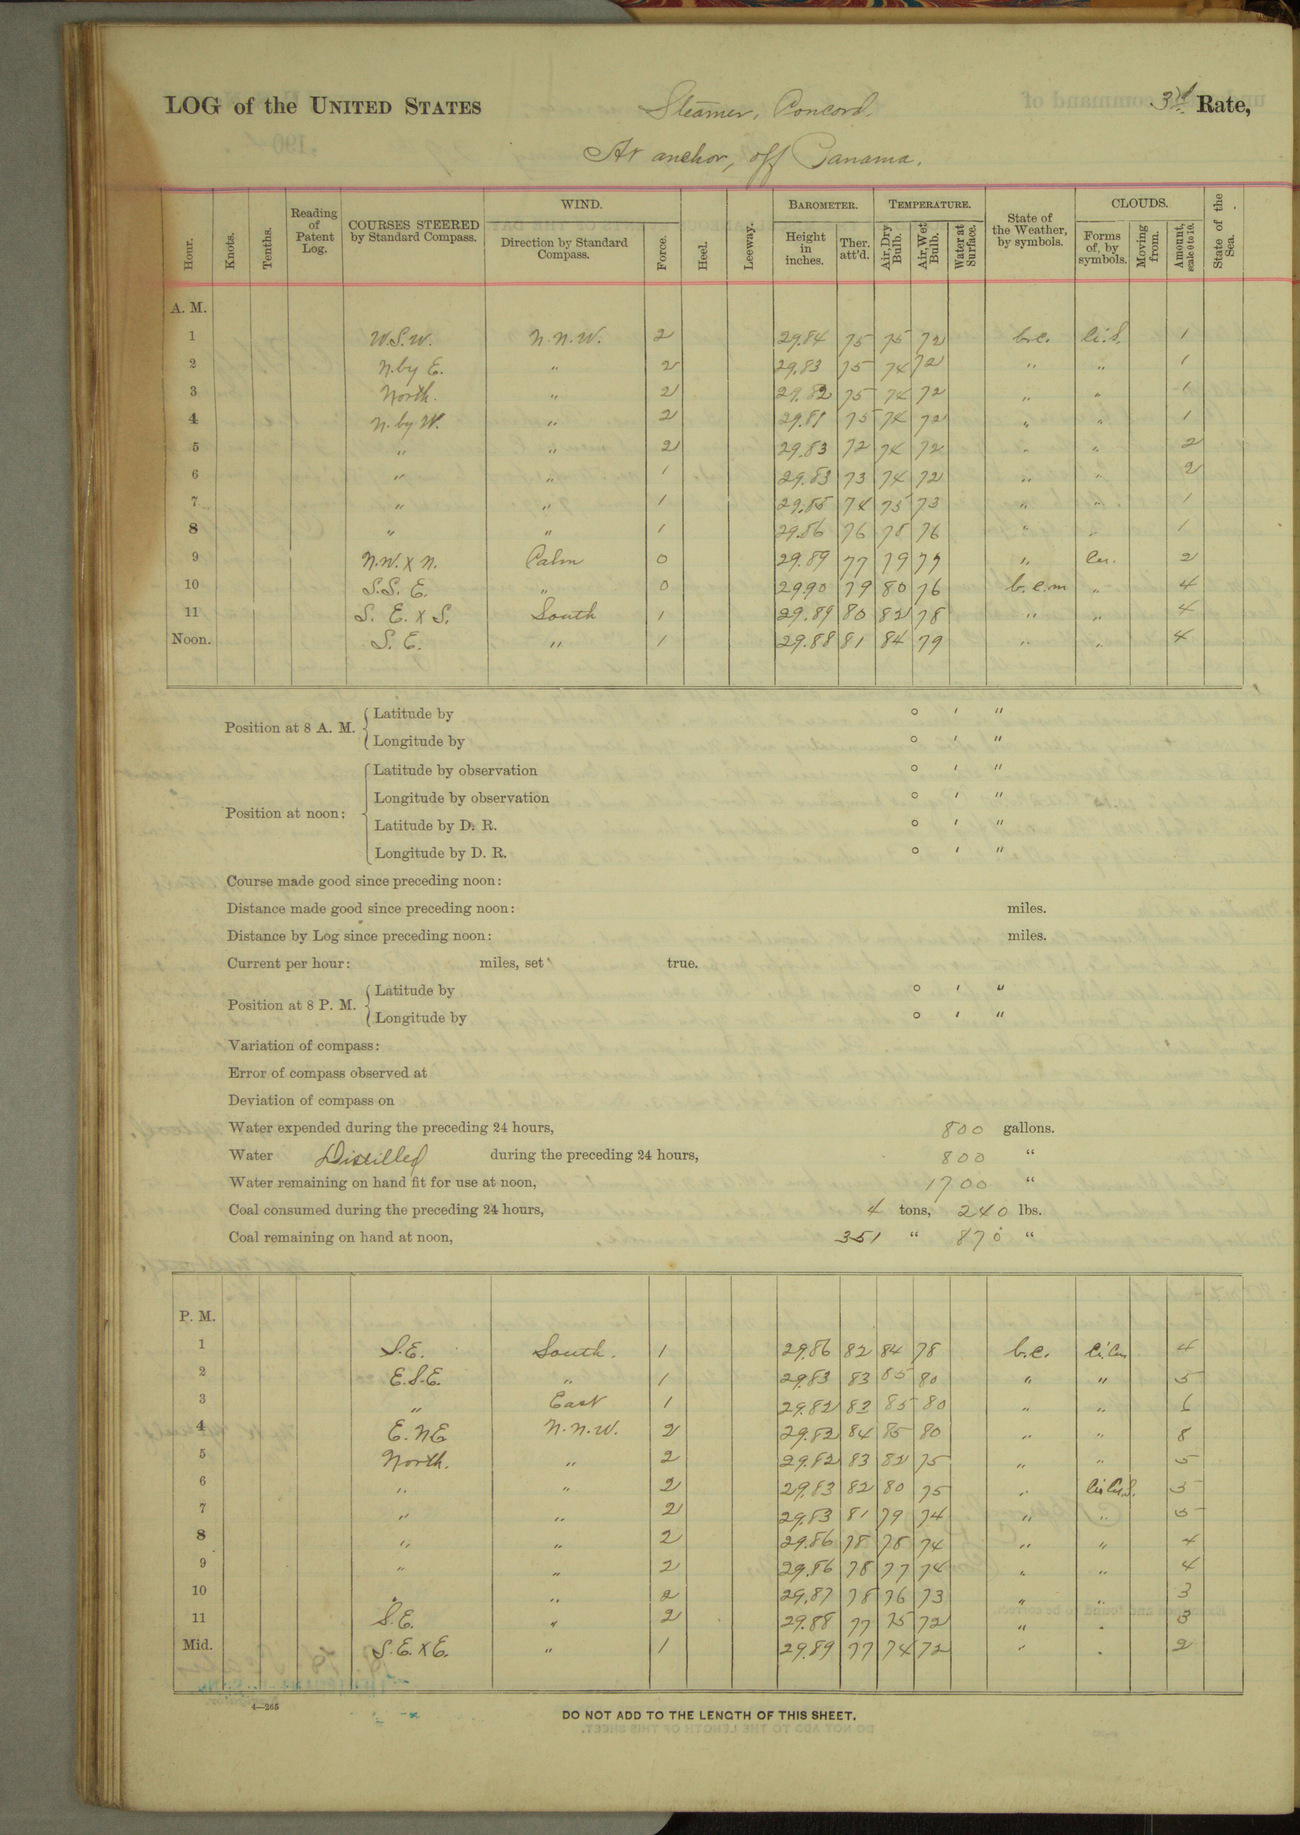 LOG of the UNITED STATES Steamer, Concord. 3d Rate,
At anchor, off Panama.
Hour. Knots. Tenths. Reading of Patent Log. COURSES STEERED by Standard Compass. WIND. Direction by Standard Compass. Force. Heel. Leeway. BAROMETER. Height in inches. Ther. att'd. TEMPERATURE. Air, Dry Bulb. Air, Wet Bulb. Water at Surface. State of the Weather, by symbols. CLOUDS. Forms of, by symbols. Moving from. Amount, scale 0 to 10. State of the Sea.
A. M.
1 W.S.W. N.N.W. 2 29.84 75 75 72 b.c. Ci.S. 1
2 N.by E. " 2 29.83 75 74 72 " " 1
3 North. " 2 29.82 75 74 72 " " 1
4 N.by W. " 2 29.81 75 74 72 " " 1
5 " " 2 29.83 72 74 72 " " 2
6 " " 1 29.83 73 74 72 " " 2
7 " " 1 29.85 74 75 73 " " 1
8 " " 1 29.86 76 78 76 " " 1
9 N.W. x N. Calm 0 29.89 77 79 77 " Cu. 2
10 S.S.E. " 0 29.90 79 80 76 b.c.m " 4
11 S.E. x S. South 1 29.89 80 82 78 " " 4
Noon. S.E. " 1 29.88 81 84 79 " " 4
Position at 8 A. M. Latitude by ° ′ ″
Longitude by ° ′ ″
Position at noon: Latitude by observation ° ′ ″
Longitude by observation ° ′ ″
Latitude by D. R. ° ′ ″
Longitude by D. R. ° ′ ″
Course made good since preceding noon:
Distance made good since preceding noon: miles.
Distance by Log since preceding noon: miles.
Current per hour: miles, set true.
Position at 8 P. M. Latitude by ° ′ ″
Longitude by ° ′ ″
Variation of compass:
Error of compass observed at
Deviation of compass on
Water expended during the preceding 24 hours, 800 gallons.
Water Distilled during the preceding 24 hours, 800 "
Water remaining on hand fit for use at noon, 1700 "
Coal consumed during the preceding 24 hours, 4 tons, 240 lbs.
Coal remaining on hand at noon, 351 " 870 "
P. M.
1 S.E. South. 1 29.86 82 84 78 b.c. Ci.Cu. 4
2 E.S.E. " 1 29.83 83 85 80 " " 5
3 " East 1 29.82 83 85 80 " " 6
4 E.NE N.N.W. 2 29.82 84 85 80 " " 8
5 North. " 2 29.82 83 82 75 " " 5
6 " " 2 29.83 82 80 75 " Ci.Cu.S. 5
7 " " 2 29.83 81 79 74 " " 5
8 " " 2 29.86 78 78 74 " " 4
9 " " 2 29.86 78 77 74 " " 4
10 " " 2 29.87 78 76 73 " " 3
11 S.E. " 2 29.88 77 75 72 " " 3
Mid. S.E.xE. " 1 29.89 77 74 72 " " 2
4—265
DO NOT ADD TO THE LENGTH OF THIS SHEET.